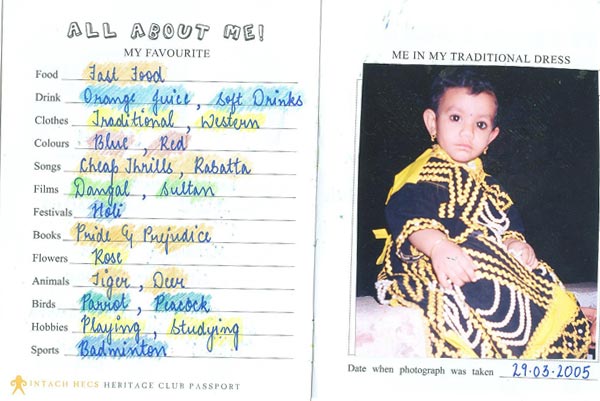 ALL ABOUT ME!
MY FAVOURITE
Food Fast Food
Drink Orange Juice , Soft Drinks
Clothes Traditional , Western
Colours Blue , Red
Songs Cheap Thrills , Rabatta
Films Dangal , Sultan
Festivals Holi
Books Pride & Prejudice
Flowers Rose
Animals Tiger , Deer
Birds Parrot , Peacock
Hobbies Playing , Studying
Sports Badminton
INTACH HECS HERITAGE CLUB PASSPORT
ME IN MY TRADITIONAL DRESS
Date when photograph was taken 29-03-2005